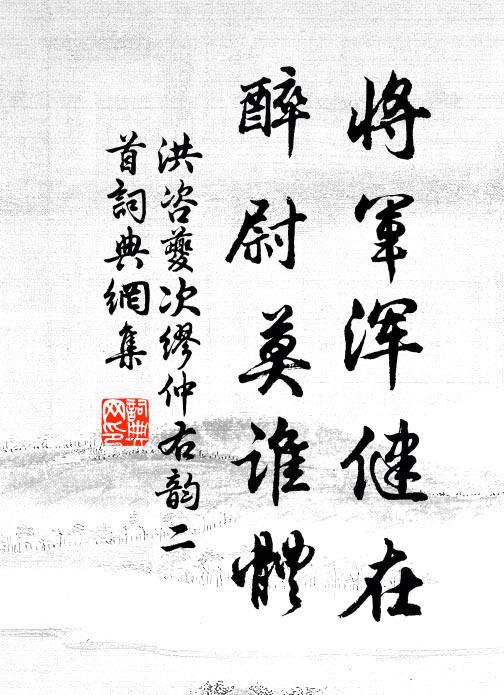 將軍渾健在
醉尉莫誰體
洪咨夔次繆仲右韵二
首詞典網集
詞典
网印